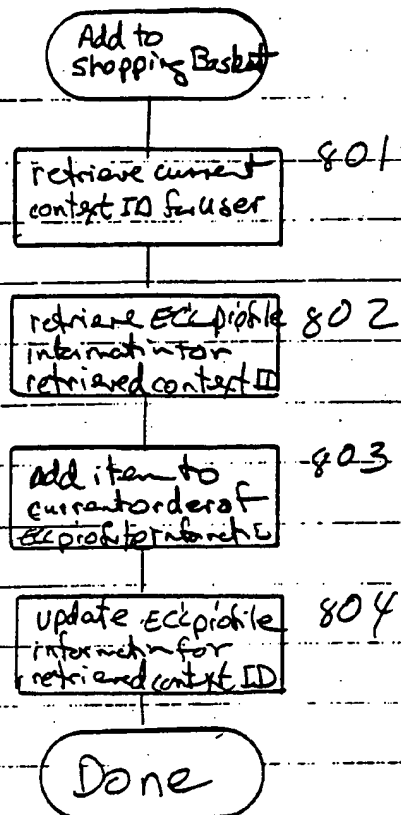 Add to
shopping Basket
801
retrieve current
context ID for user
802
retrieve ECC profile
information for
retrieved context ID
803
Add item to
current order of
ECC profile informatic
804
update ECC profile
information for
retrieved context ID
Done